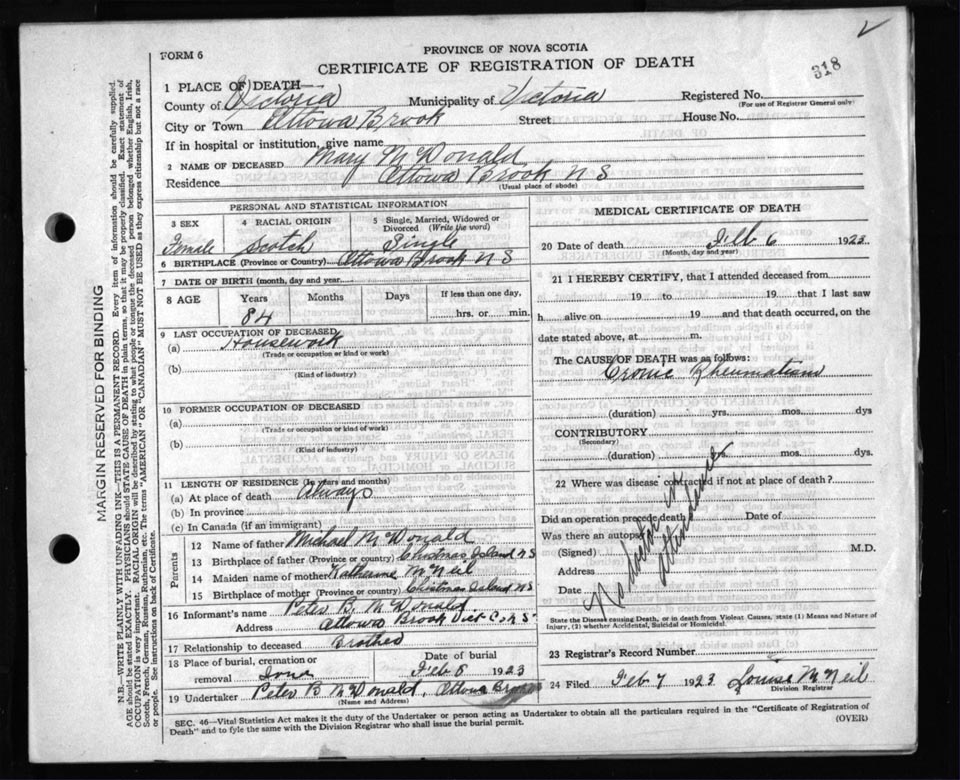 FORM 6
PROVINCE OF NOVA SCOTIA
CERTIFICATE OF REGISTRATION OF DEATH
318
1 PLACE OF DEATH
County of Victoria Municipality of Victoria Registered No.
(For use of Registrar General only)
City or Town Ottowa Brook Street House No.
If in hospital or institution, give name
2 NAME OF DECEASED Mary McDonald
Residence Ottowa Brook N S
(Usual place of abode)
PERSONAL AND STATISTICAL INFORMATION
3 SEX 4 RACIAL ORIGIN 5 Single, Married, Widowed or Divorced (Write the word)
Female Scotch Single
6 BIRTHPLACE (Province or Country) Ottowa Brook N S
7 DATE OF BIRTH (month, day and year)
8 AGE Years Months Days If less than one day,
84 hrs. or min.
9 LAST OCCUPATION OF DECEASED
(a) Housework
(Trade or occupation or kind or work)
(b)
(Kind of industry)
10 FORMER OCCUPATION OF DECEASED
(a)
(Trade or occupation or kind of work)
(b)
(Kind of industry)
11 LENGTH OF RESIDENCE (In years and months)
(a) At place of death Always
(b) In province
(c) In Canada (if an immigrant)
Parents
12 Name of father Michael McDonald
13 Birthplace of father (Province or country) Christmas Island N S
14 Maiden name of mother Katherine McNeil
15 Birthplace of mother (Province or country) Christmas Island N S
16 Informant's name Peter B. McDonald
Address Ottowa Brook Vict Co N S
17 Relationship to deceased Brother
18 Place of burial, cremation or removal Iona Date of burial Feb 8 1923
19 Undertaker Peter B McDonald, Ottowa Brook
(Name and Address)
MEDICAL CERTIFICATE OF DEATH
20 Date of death Feb 6 1923
(Month, day and year)
21 I HEREBY CERTIFY, that I attended deceased from
19 to 19 that I last saw
h alive on 19 and that death occurred, on
date stated above, at m.
The CAUSE OF DEATH was as follows:
Cronic Rheumatism
(duration) yrs. mos. dys
CONTRIBUTORY
(Secondary)
(duration) mos. dys
22 Where was disease contracted if not at place of death?
Did an operation precede death Date of
Was there an autopsy
(Signed) M.D.
Address
Date
No doctor in attendance
State the Disease causing Death, or in death from Violent Causes, state (1) Means and Nature of Injury, (2) whether Accidental, Suicidal or Homicidal.
23 Registrar's Record Number
24 Filed Feb 7 1923 Louise McNeil
Division Registrar
SEC. 46—Vital Statistics Act makes it the duty of the Undertaker or person acting as Undertaker to obtain all the particulars required in the "Certificate of Registration of
Death" and to fyle the same with the Division Registrar who shall issue the burial permit. (OVER)
MARGIN RESERVED FOR BINDING
N.B.—WRITE PLAINLY WITH UNFADING INK—THIS IS A PERMANENT RECORD. Every item of information should be carefully supplied.
AGE should be stated EXACTLY. PHYSICIANS should STATE CAUSE OF DEATH in plain terms, so that it may be properly classified. Exact statement of
OCCUPATION is very important. RACIAL ORIGIN will be described by stating to what people or tongue the deceased person belonged whether English, Irish,
Scotch, French, German, Russian, Ruthenian, etc. The terms "AMERICAN" or "CANADIAN" MUST NOT BE USED as they express citizenship but not a race
or people. See instructions on back of Certificate.